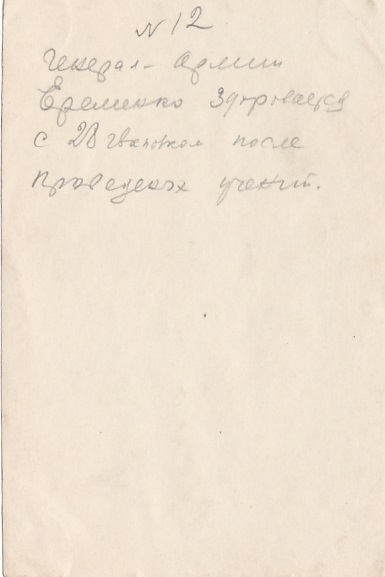 N 12
Генерал-Армии
Еременко здоровается
с после
проведеных учений.